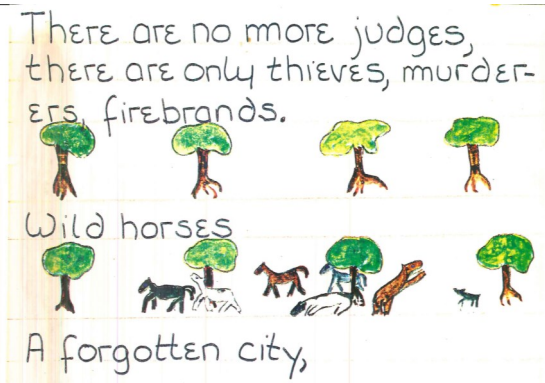 There are no more judges,
there are only thieves, murder-
ers, firebrands.
Wild horses
A forgotten city,